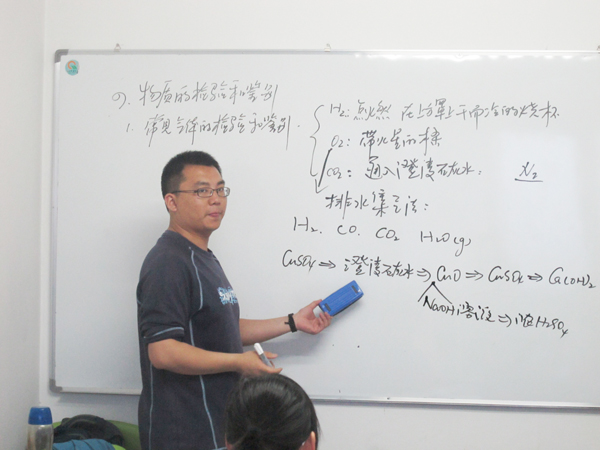 四、物质的检验和鉴别
1. 常见气体的检验和鉴别.
H₂: 点燃 在上方罩上干而冷的烧杯
O₂: 带火星的木条
CO₂: 通入澄清石灰水;
N₂
排水集气法:
H₂. CO. CO₂ H₂O(g)
CuSO₄ ⇒ 澄清石灰水 ⇒ CuO ⇒ CuSO₄ ⇒ Ca(OH)₂
NaOH溶液 ⇒ H₂SO₄